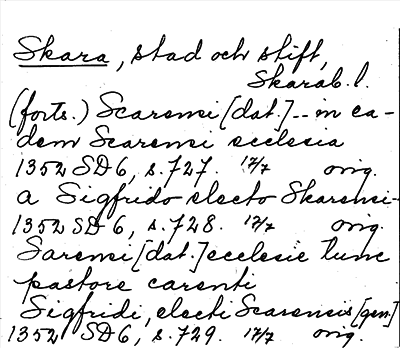 Skara, stad och stift,
Skarab. l.
(forts.) Scarensi [dat.] -- in ea-
dem Scarensi ecclesia
1352 SD 6, s. 727. 17/7 orig.
a Sigfrido electo Skarensi-
1352 SD 6, s. 728. 17/7 orig.
Sarensi [dat.] ecclesie tunc
pastore carenti
Sigfridi, electi Scarensis [gen.]
1352 SD 6, s. 729. 17/7 orig.